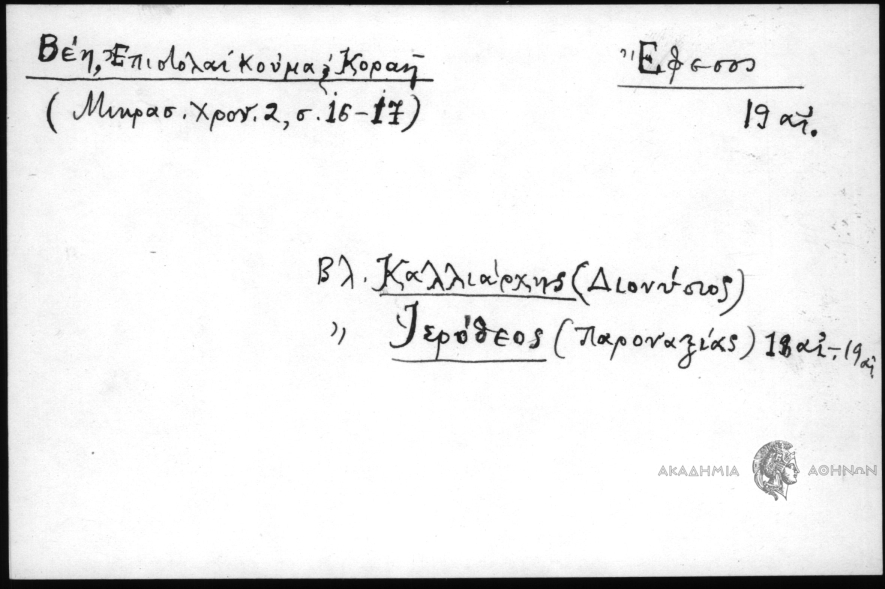 Βέη, Ἐπιστολαί Κούμα ζ Κοραῆ
(Μικρασ. Χρον. 2, σ. 16-17)
Ἔφεσος
19 αἰ.
Βλ. Καλλιάρχης (Διονύσιος)
〃 Ἱερόθεος (Παροναξίας) 18 αἰ.-19 αἰ.
ΑΚΑΔΗΜΙΑ ΑΘΗΝΩΝ